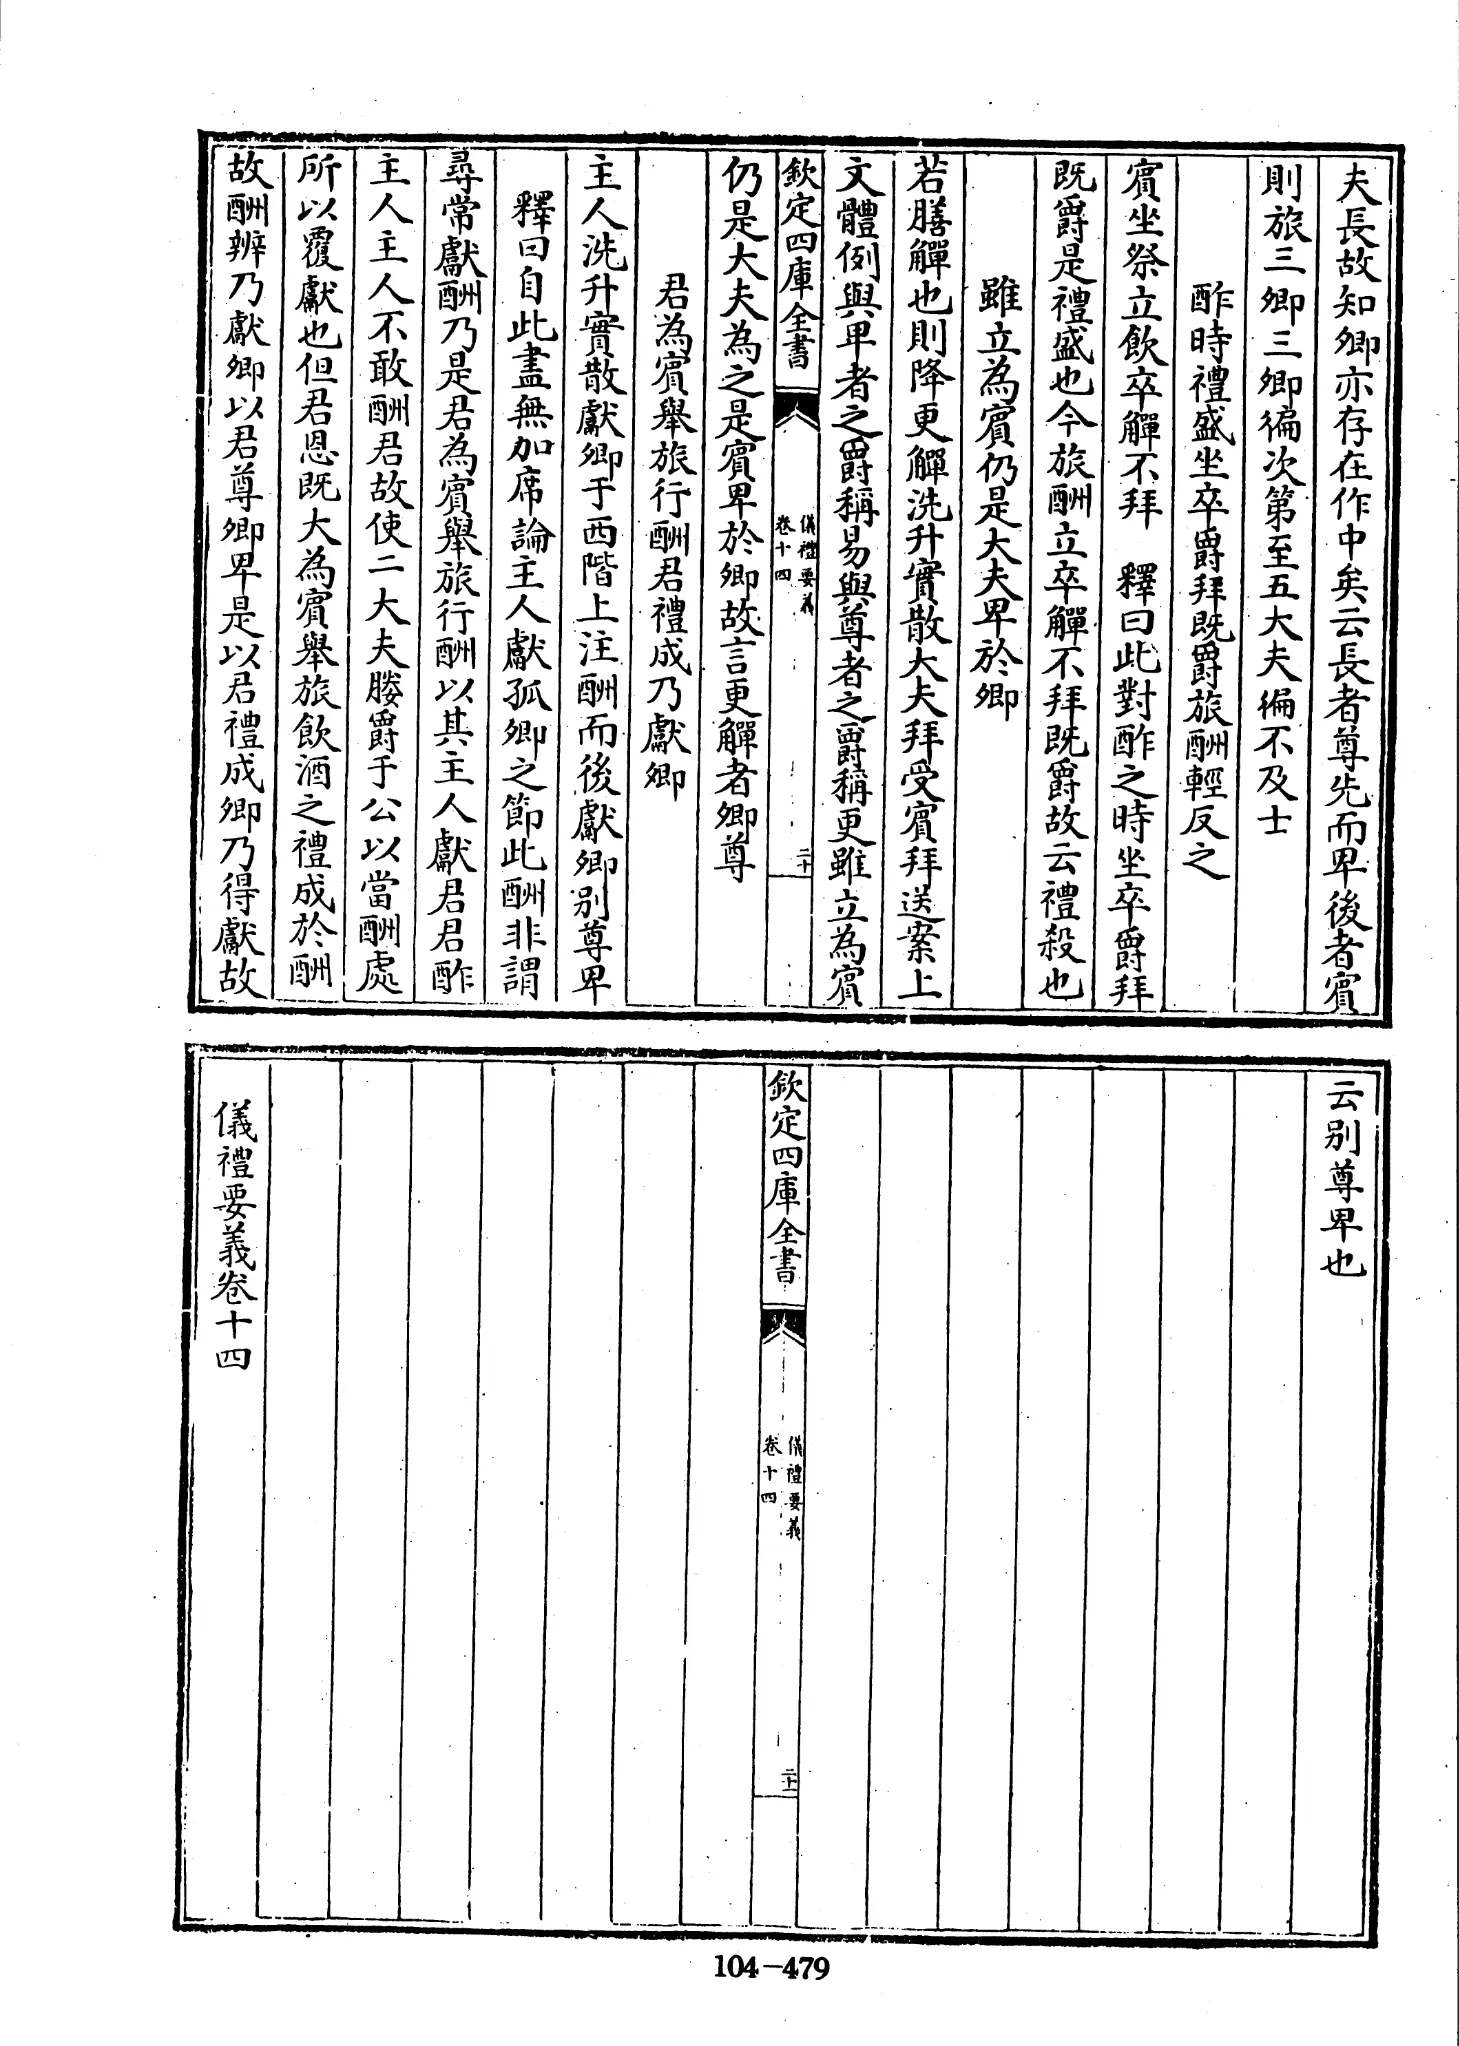 夫長故知卿亦存在作中矣云長者尊先而卑後者賓
則旅三卿三卿徧次第至五大夫徧不及士
酢時禮盛坐卒爵拜既爵旅酬輕反之
賓坐祭立飲卒觶不拜　釋曰此對酢之時坐卒爵拜
既爵是禮盛也今旅酬立卒觶不拜既爵故云禮殺也
雖立為賓仍是大夫卑於卿
若膳觶也則降更觶洗升實散大夫拜受賓拜送案上
文體例與卑者之爵稱易與尊者之爵稱更雖立為賓
欽定四庫全書
儀禮要義
卷十四
二十
仍是大夫為之是賓卑於卿故言更觶者卿尊
君為賓舉旅行酬君禮成乃獻卿
主人洗升實散獻卿于西階上注酬而後獻卿別尊卑
釋曰自此盡無加席論主人獻孤卿之節此酬非謂
尋常獻酬乃是君為賓舉旅行酬以其主人獻君君酢
主人主人不敢酬君故使二大夫媵爵于公以當酬處
所以覆獻也但君恩既大為賓舉旅飲酒之禮成於酬
故酬辨乃獻卿以君尊卿卑是以君禮成卿乃得獻故
云別尊卑也
欽定四庫全書
儀禮要義
卷十四
二十一
儀禮要義卷十四
104-479